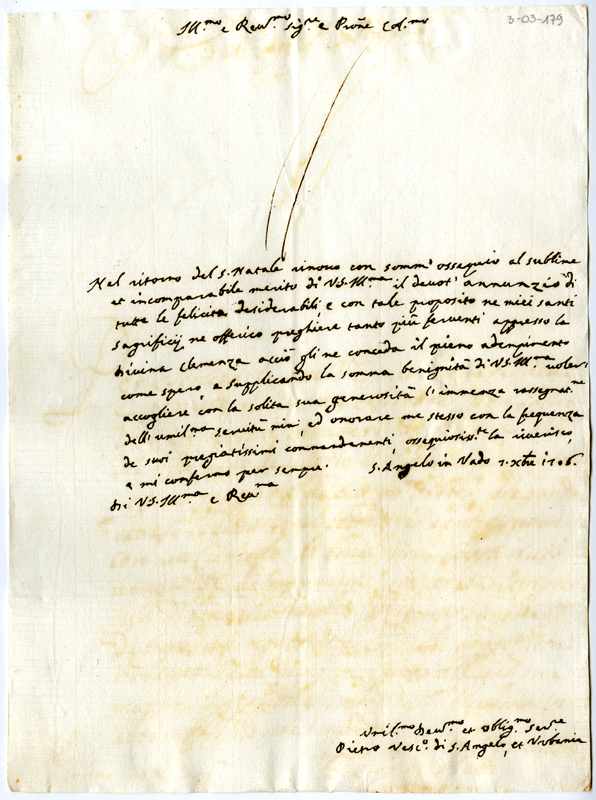 3-03-179
Ill.mo e Rev.mo Sig.re e Prõne Col.mo
Nel ritorno del S. Natale rinovo con somm' ossequio al sublime
et incomparabile merito di V.S. Ill.ma il devot' annunzio di
tutte le felicità desiderabili, e con tale proposito ne miei santi
sagrificij ne offerico preghiere tanto più ferventi appresso la
divina Clemenza acciò gli ne conceda il pieno adempimento
come spero, a supplicando la somma benignità di V.S. Ill.ma voler
accogliere con la solita sua generosità l'immensa rassegnat.ne
dell' umil.ma servitù mia, ed onorare me stesso con la frequenza
de suoi pregiatissimi commandamenti, ossequiosiss.te la riverisco,
e mi confermo per sempre.
S. Angelo in Vado 7. Xbre 1706.
di V.S. Ill.ma e Rev.ma
Umil.mo Dev.mo et Oblig.mo Serv.re
Pietro Vesc.o di S. Angelo, et Urbania